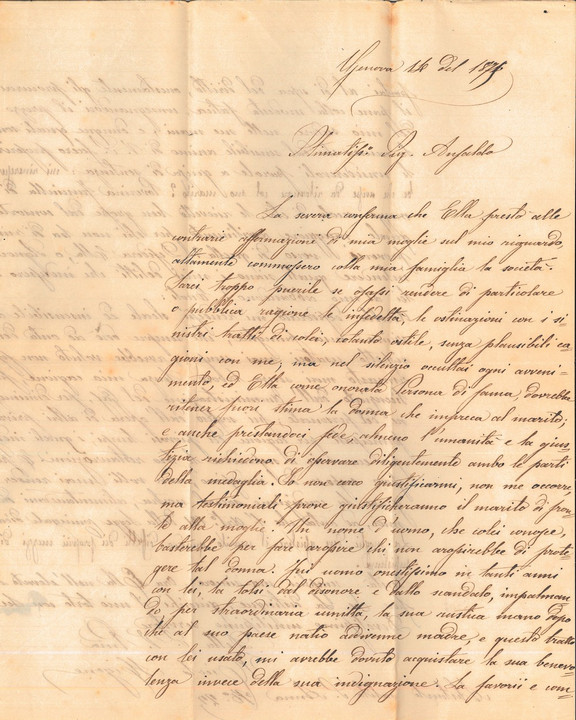 Genova 14 del 1875
Stimatiss: Sig. Ansaldo
La severa conferma che Ella prestò alle
contrarie affermazioni di mia moglie sul mio riguardo,
altamente commossero colla mia famiglia la società.
Sarei troppo puerile se osassi rendere di particolare
e pubblica ragione le infedeltà, le ostinazioni con i si-
nistri tratti di colei, cotanto ostile, senza plausibili ca-
gioni con me, ma nel silenzio occultai ogni avveni-
mento, ed Ella come onorata Persona di fama, dovrebbe
ritener fuori stima la donna che impreca al marito,
e anche prestandoci fede, almeno l'umanità e la giu-
stizia richiedono di osservare diligentemente ambo le parti
della medaglia. Io non cerco giustificarmi, non me occorre,
ma testimoniali prove giustificheranno il marito di fron-
te alla moglie. Un nome d'uomo, che colei conosce,
basterebbe per fare arossire chi non arossirebbe di prote-
gere tal donna. Fui uomo onestissimo in tanti anni
con lei, la tolsi dal disonore e dallo scandalo, impalman-
do per straordinaria umiltà, la sua rustica mano dopo
che al suo paese natio addivenne madre, e questo tratto
con lei usato, mi avrebbe dovuto acquistare la sua benevo-
lenza invece della sua indignazione. La favorii e com-